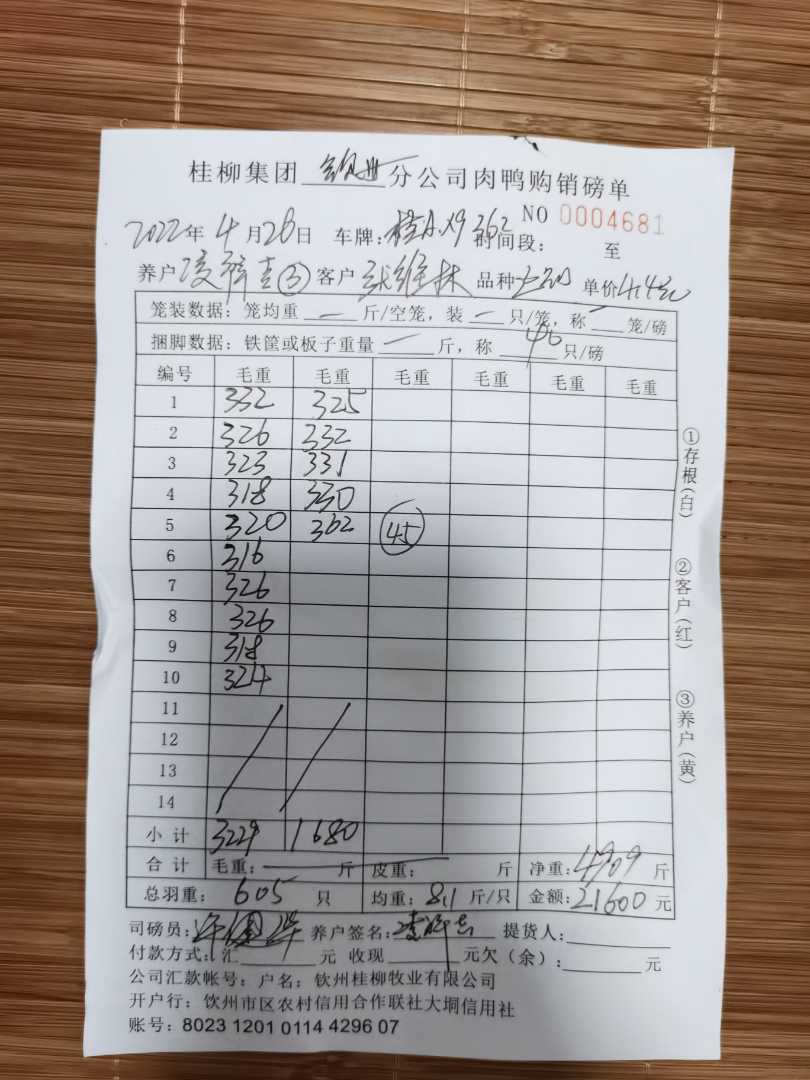 桂柳集团 钦州 分公司肉鸭购销磅单
NO 0004681
2022年4月26日 车牌:桂A X9362 时间段: 至
养户 ③ 客户 张维林 品种 单价4.4元
笼装数据:笼均重 — 斤/空笼,装 — 只/笼,称 — 笼/磅
捆脚数据:铁筐或板子重量 — 斤,称 40 只/磅
编号 毛重 毛重 毛重 毛重 毛重 毛重
1 332 325
2 326 332
3 323 331
4 318 330
5 320 362 45
6 316
7 326
8 326
9 318
10 324
11
12
13
14
小计 3229 1680
合计 毛重: — 斤 皮重: — 斤 净重:4909 斤
总羽重: 605 只 均重:8.1 斤/只 金额:21600 元
司磅员: 养户签名: 提货人:
付款方式:汇 元 收现 元欠(余): 元
公司汇款帐号:户名:钦州桂柳牧业有限公司
开户行:饮州市区农村信用合作联社大垌信用社
账号:8023 1201 0114 4296 07
①存根(白)
②客户(红)
③养户(黄)